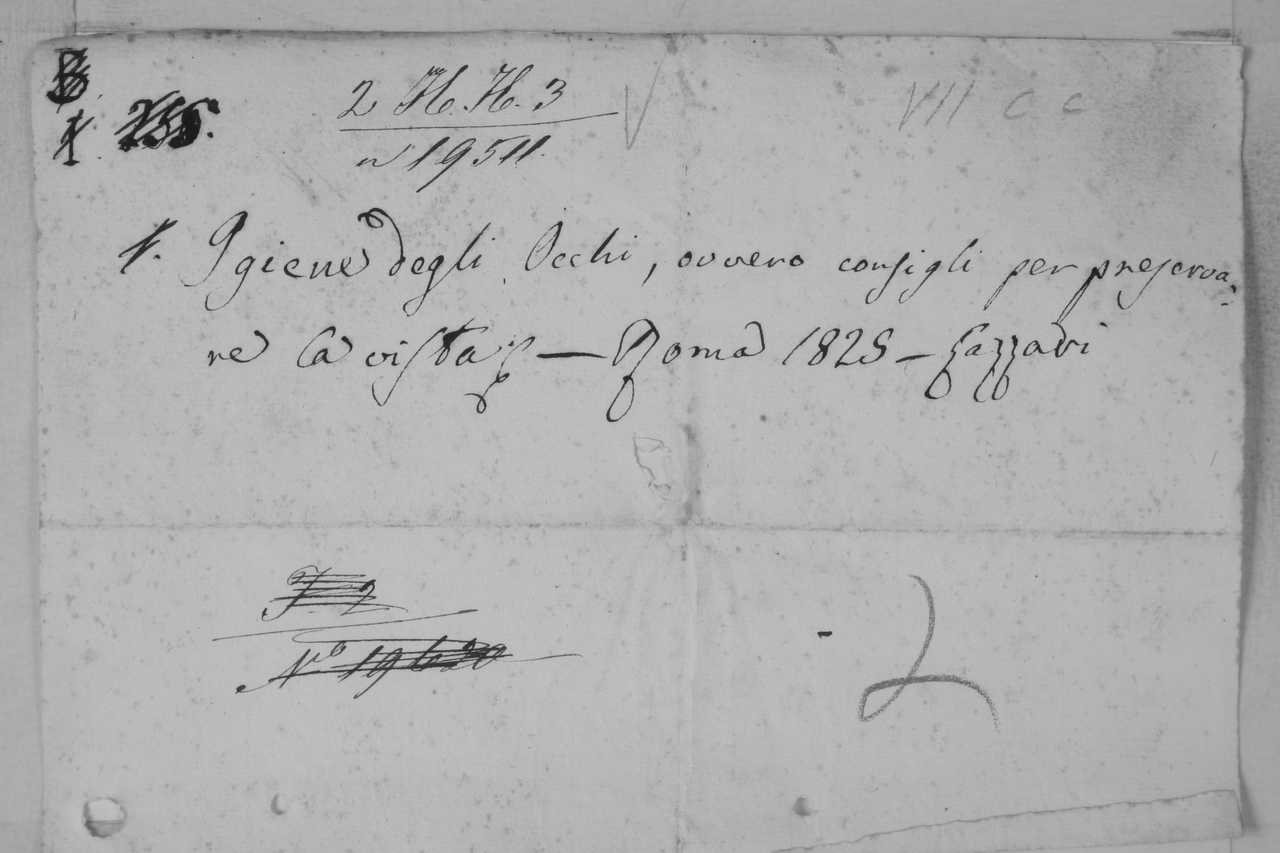 B.
1. 255.
2 H. H. 3
n 19511.
VII C C
1. Igiene degli Occhi, ovvero consigli per preserva=
re la vista &c — Roma 1825 – Lazzari
F. 2
Nº 19620
2